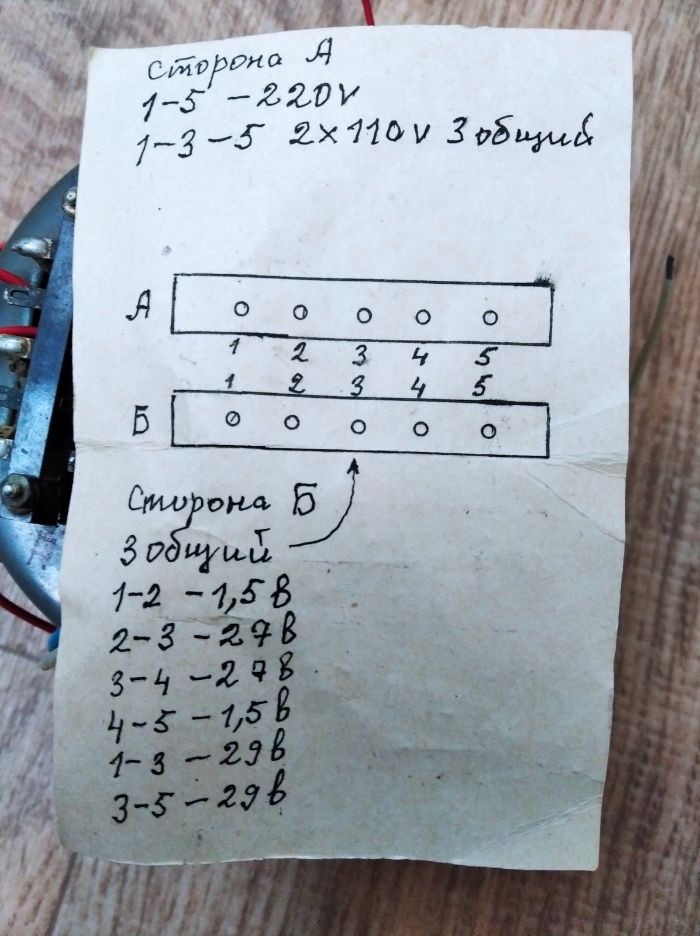 Сторона А
1-5 -220v
1-3-5 2x110v 3 общий
А
1 2 3 4 5
1 2 3 4 5
Б
Сторона Б
3 общий
1-2 -1,5 в
2-3 -27 в
3-4 -27 в
4-5 -1,5 в
1-3 -29 в
3-5 -29 в